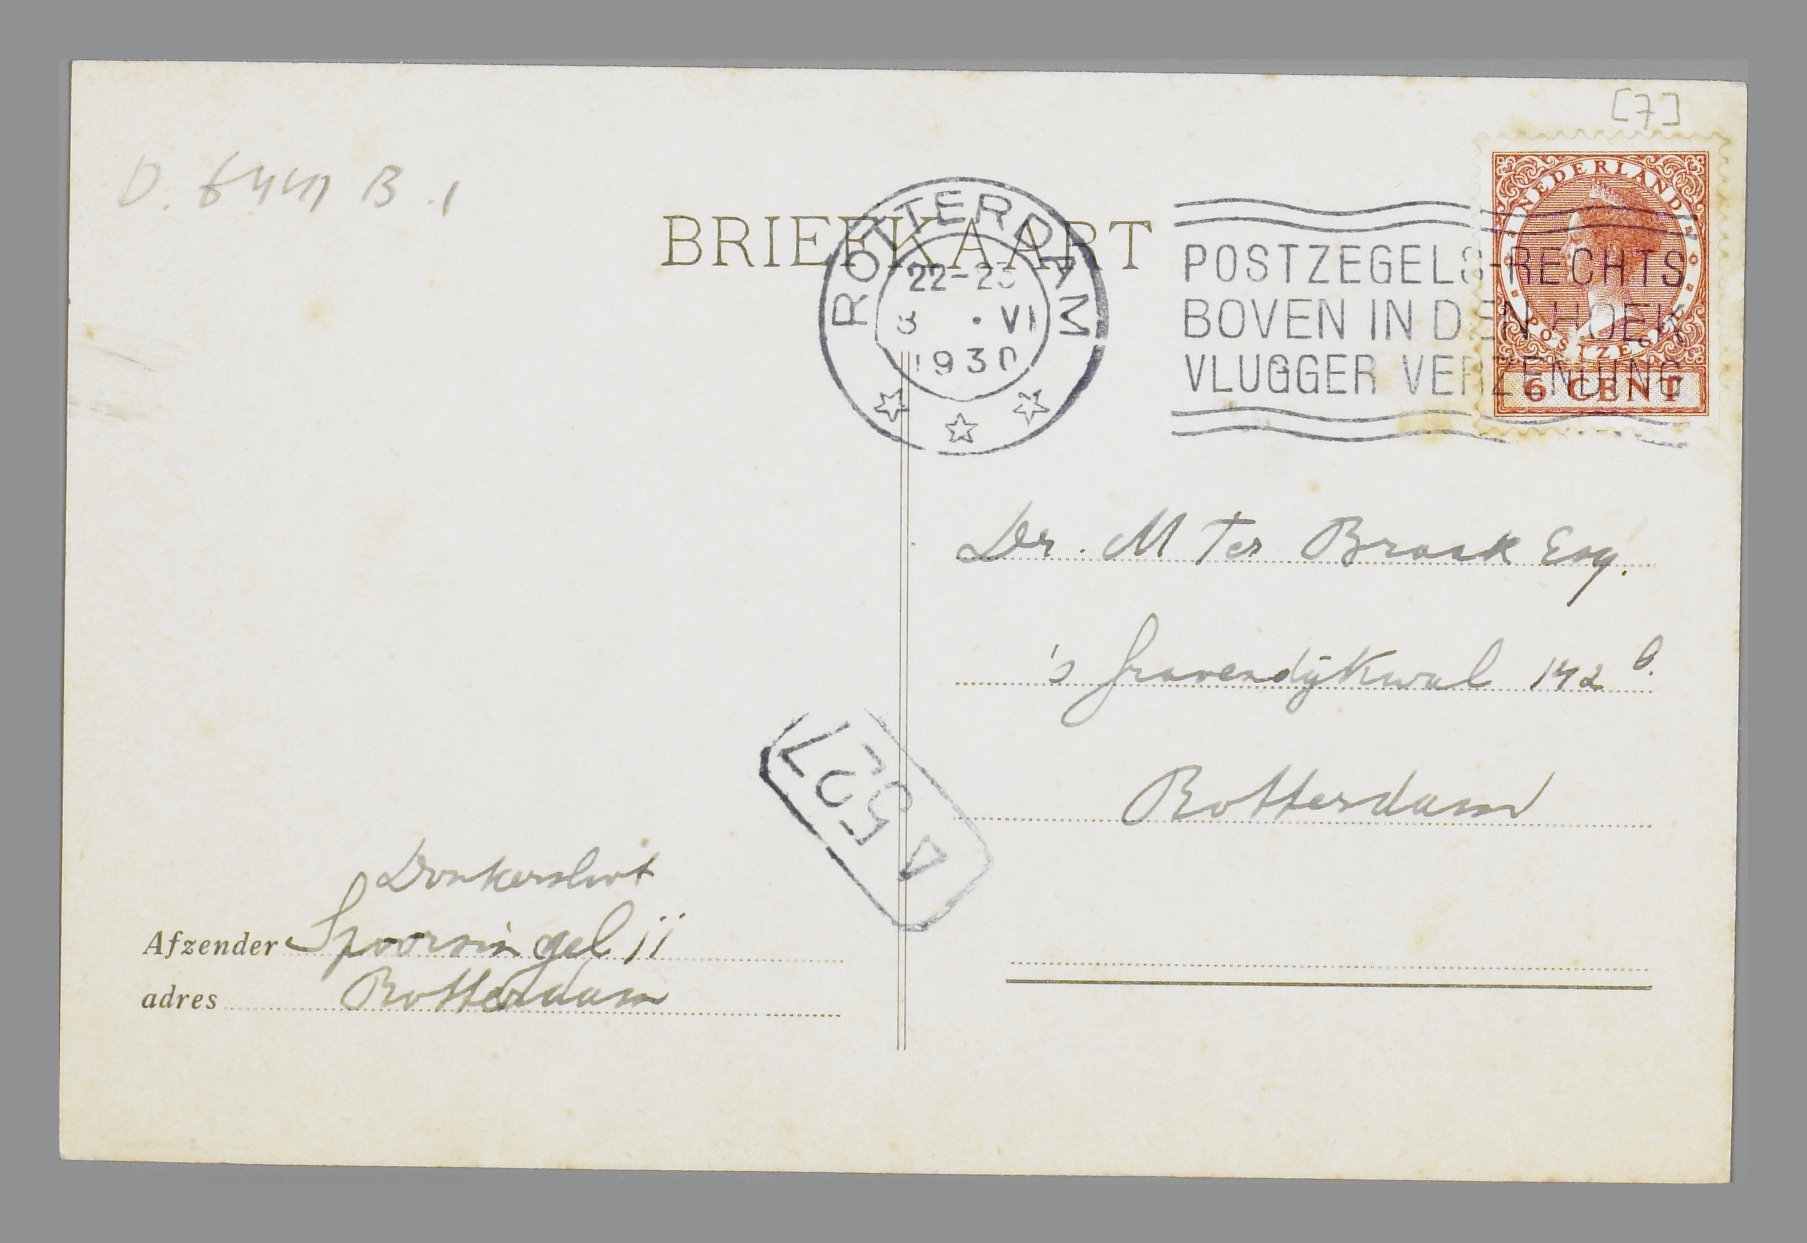 [7]
D. 6441 B.1
BRIEFKAART
ROTTERDAM
22-23
3 . VI
1930
POSTZEGELS RECHTS
BOVEN IN DEN HOEK
VLUGGER VERZENDING
NEDERLAND
POSTZEGEL
6 CENT
Dr. M Ter Braak Esq.
's Gravendijkwal 142 b.
Rotterdam
A 527
Donkersloot
Afzender Spoorsingel 11
adres Rotterdam